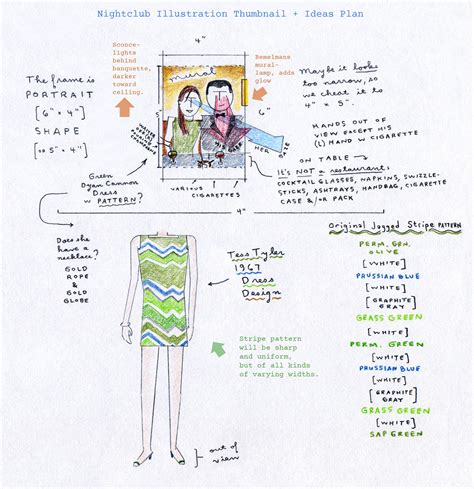 Nightclub Illustration Thumbnail + Ideas Plan
Sconce-
lights
behind
banquette,
darker
toward
ceiling.
4"
Bemelmans
mural-
lamp, adds
glow
mural
The frame is
PORTRAIT
[6" x 4"]
SHAPE
[OR 5" x 4"]
6"
5"
Maybe it looks
too narrow, so
we cheat it to
4" x 5".
HANDS OUT OF
VIEW EXCEPT HIS
(L) HAND W CIGARETTE
HER
GAZE
ON TABLE
It's NOT a restaurant:
COCKTAIL GLASSES, NAPKINS, SWIZZLE-
STICKS, ASHTRAYS, HANDBAG, CIGARETTE
CASE &/OR PACK
VARIOUS
CIGARETTES
Green
Dyan Cannon
Dress
W PATTERN?
4"
Does she
have a
necklace?
GOLD
ROPE
&
GOLD
GLOBE
Tess Tyler
1967
Dress
Design
Stripe pattern
will be sharp
and uniform,
but of all kinds
of varying widths.
out of
view
Original Jagged Stripe PATTERN
PERM. GRN.
OLIVE
[WHITE]
PRUSSIAN BLUE
[WHITE]
[GRAPHITE
GRAY]
GRASS GREEN
[WHITE]
PERM. GREEN
[WHITE]
PRUSSIAN BLUE
[WHITE]
[GRAPHITE
GRAY]
GRASS GREEN
[WHITE]
SAP GREEN